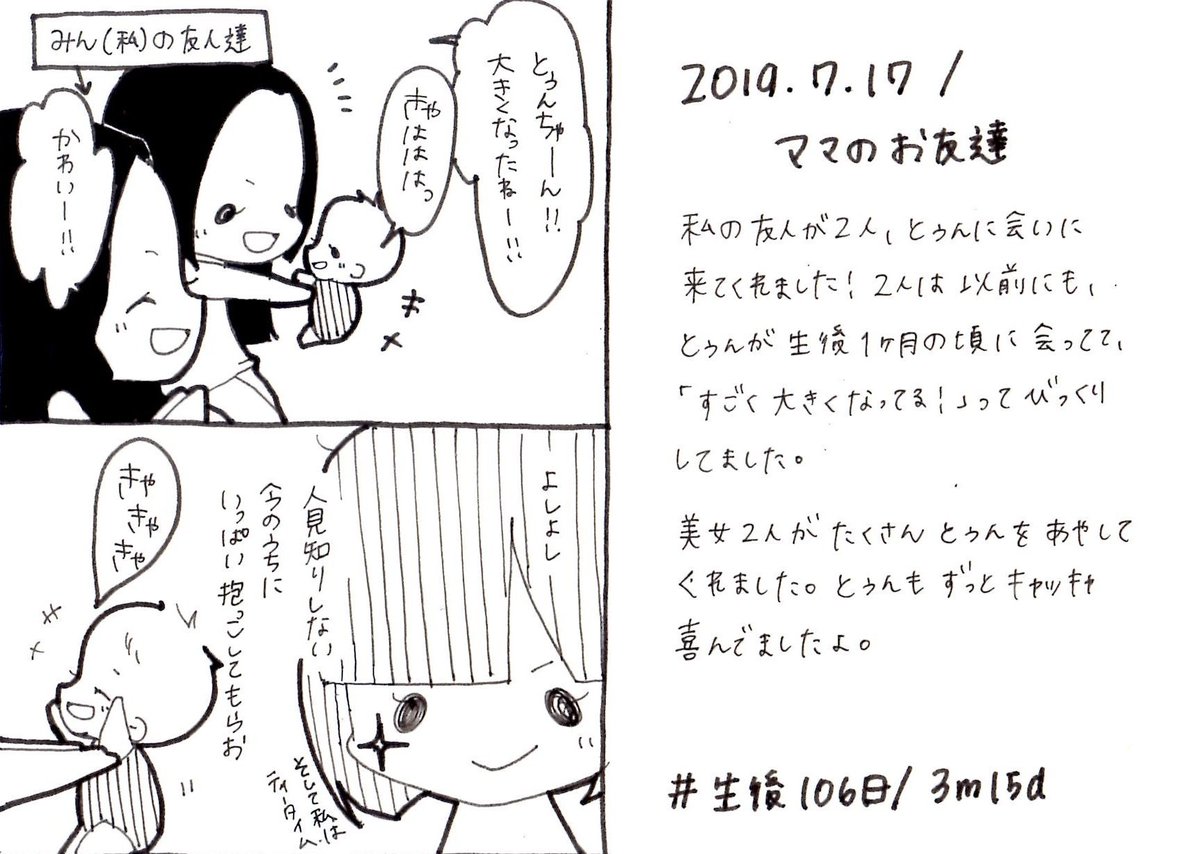 みん(私)の友人達
とぅんちゃーん!!
大きくなったねー!!
きゃははは
かわいー!!
よしよし
人見知りしない
今のうちに
いっぱい抱っこしてもらお
そして私は
ティータイム.
きゃ
きゃ
きゃ
2019.7.17 /
ママのお友達
私の友人が2人、とぅんに会いに
来てくれました!2人は以前にも、
とぅんが生後1ヶ月の頃に会ってて、
「すごく大きくなってる!」ってびっくり
してました。
美女2人がたくさんとぅんをあやして
くれました。とぅんもずっとキャッキャ
喜んでましたよ。
#生後106日/3m15d